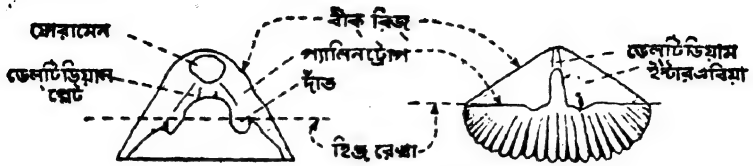 ফোরামেন
ডেলটিডিয়াল
প্লেট
বীক্ রিজ্
প্যালিনট্রোপ
দাঁত
হিঞ্জ রেখা
ডেলটিডিয়াম
ইন্টারএরিয়া